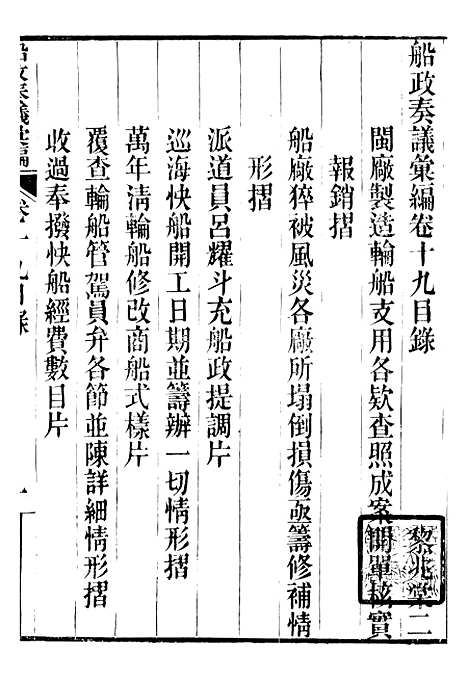 船政奏議彙編卷十九目錄
黎兆棠二
閩廠製造輪船支用各欵查照成案開單核實
報銷摺
船廠猝被風災各廠所塌倒損傷亟籌修補情
形摺
派道員呂耀斗充船政提調片
巡海快船開工日期並籌辦一切情形摺
萬年清輪船修改商船式樣片
覆查輪船管駕員弁各節並陳詳細情形摺
收過奉撥快船經費數目片
船政奏議彙編 卷十九目錄 一